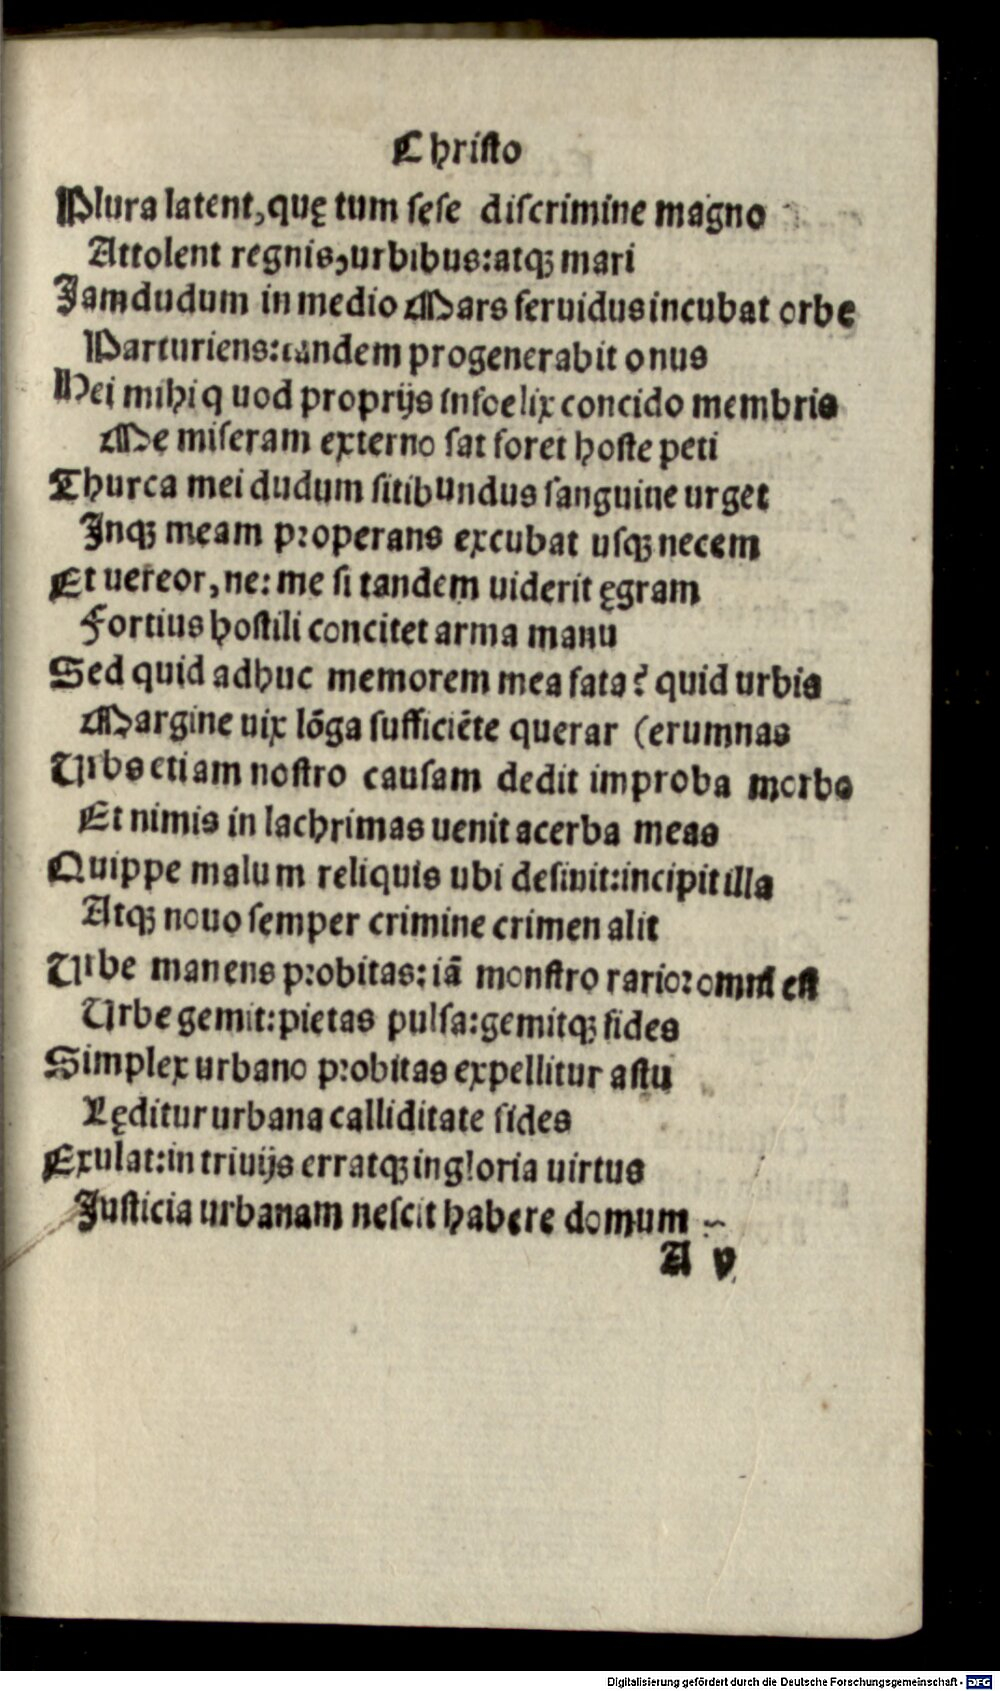 Christo
Plura latent, quę tum sese discrimine magno
Attolent regnis, urbibus: atq; mari
Jamdudum in medio Mars feruidus incubat orbe
Parturiens: tandem progenerabit onus
Hei mihi q uod proprijs infoelix concido membris
Me miseram externo sat foret hoste peti
Thurca mei dudum sitibundus sanguine urget
Inq; meam properans excubat usq; necem
Et uereor, ne: me si tandem uiderit ęgram
Fortius hostili concitet arma manu
Sed quid adhuc memorem mea fata? quid urbis
Margine uix lōga sufficiēte querar (erumnas
Urbs etiam nostro causam dedit improba morbo
Et nimis in lachrimas uenit acerba meas
Quippe malum reliquis ubi desinit: incipit illa
Atq; nouo semper crimine crimen alit
Urbe manens probitas: iā monstro rarior omni est
Urbe gemit: pietas pulsa: gemitq; fides
Simplex urbano probitas expellitur astu
Lęditur urbana calliditate fides
Exulat: in triuijs erratq; ingloria uirtus
Justicia urbanam nescit habere domum ~
A v
Digitalisierung gefördert durch die Deutsche Forschungsgemeinschaft - DFG